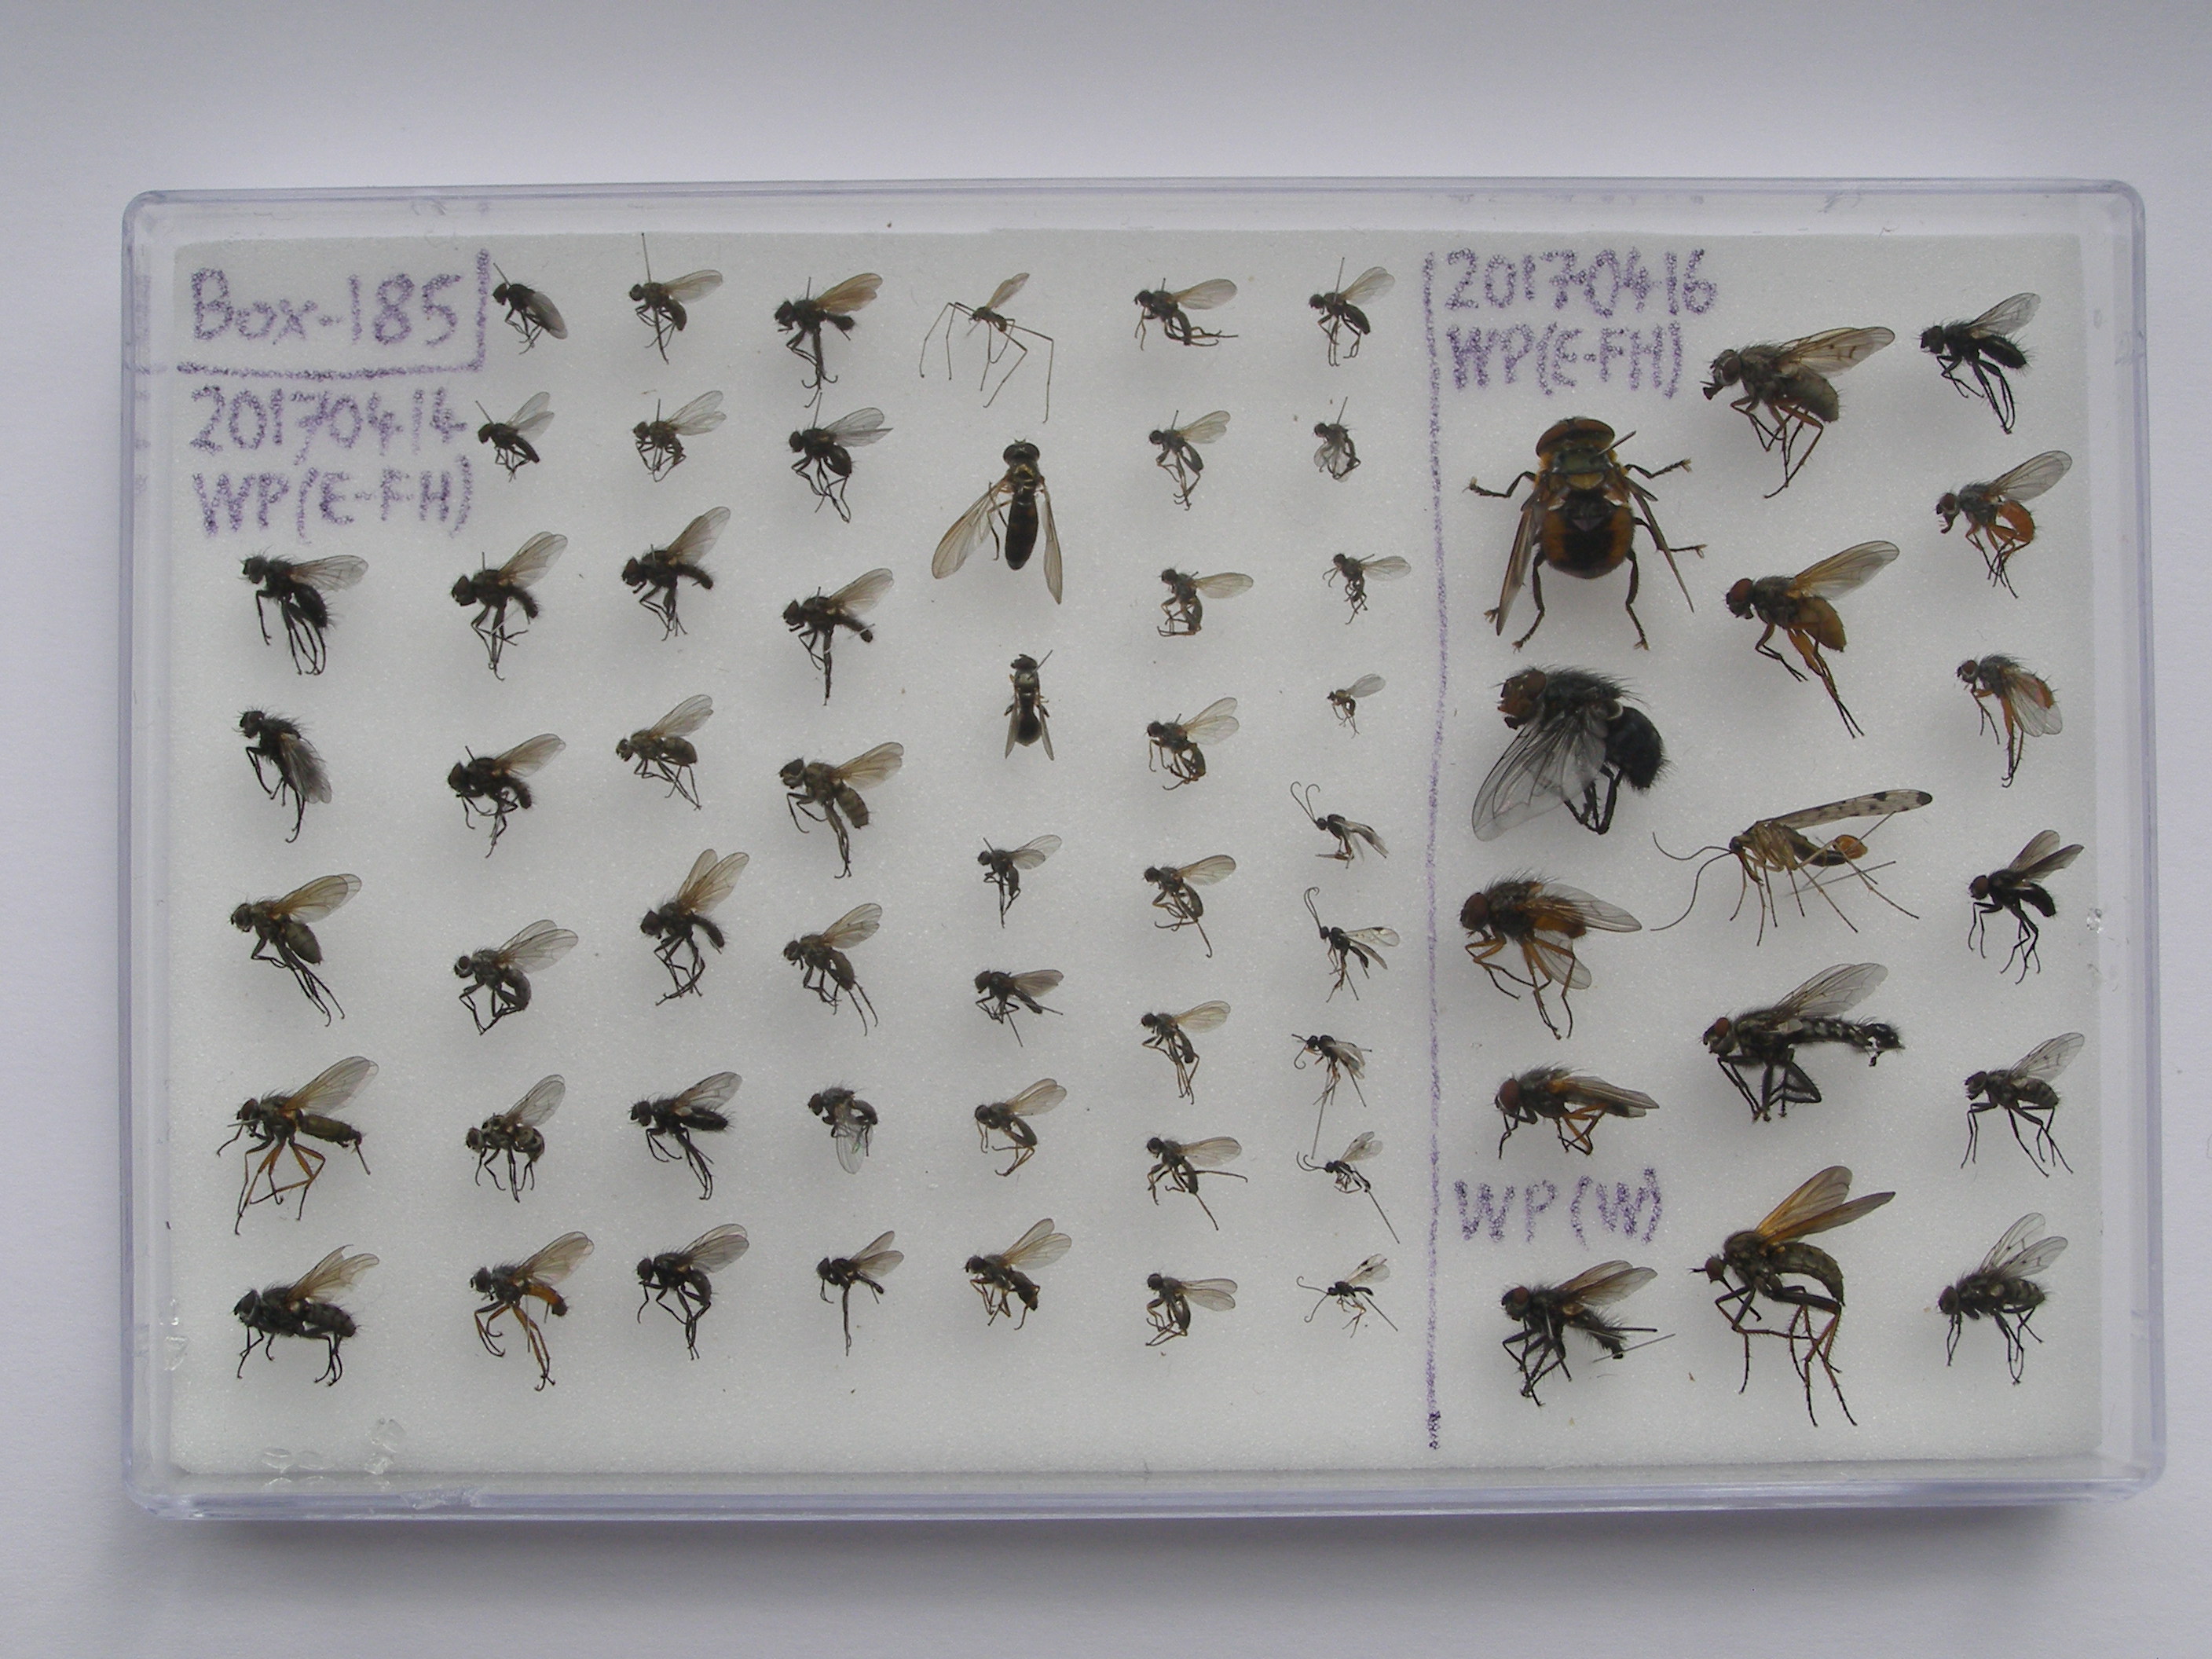 Box-185
20170414
WP(E-FH)
20170416
WP(E-FH)
WP(W)